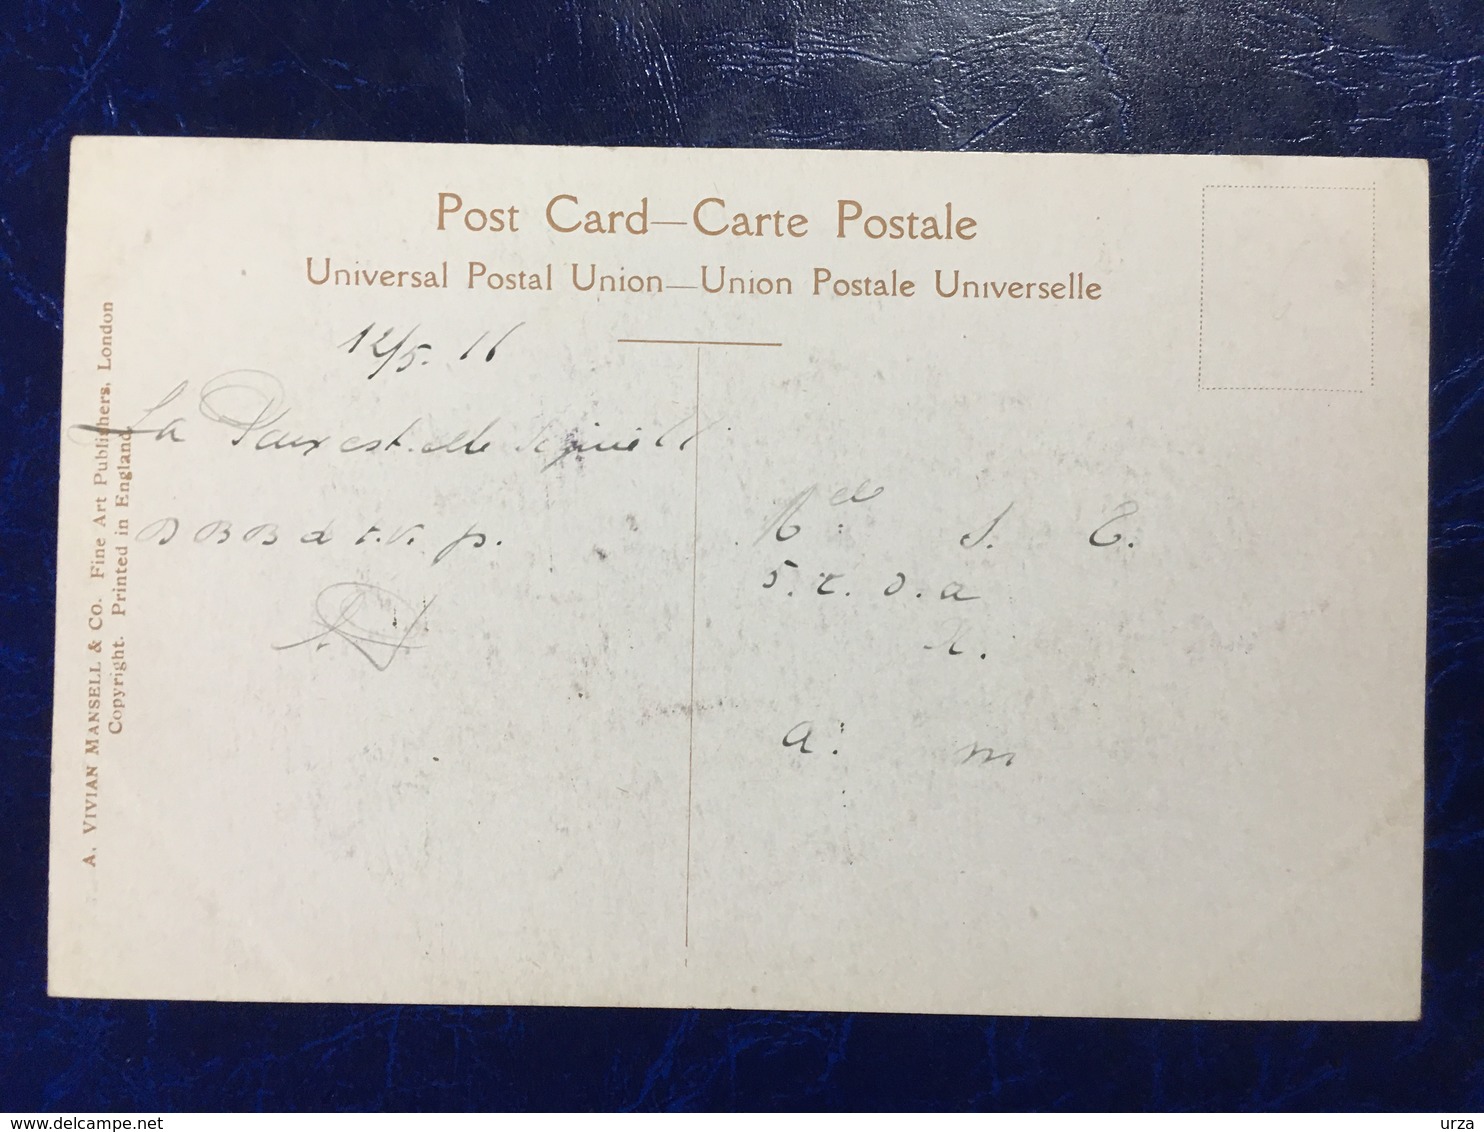 Post Card—Carte Postale
Universal Postal Union—Union Postale Universelle
12/5. 16
La Paix est elle signée
B B B d t. v. p.
S. E.
5. r. d. a
a. m
A. VIVIAN MANSELL & CO. Fine Art Publishers, London
Copyright. Printed in England
delcampe.net
urza